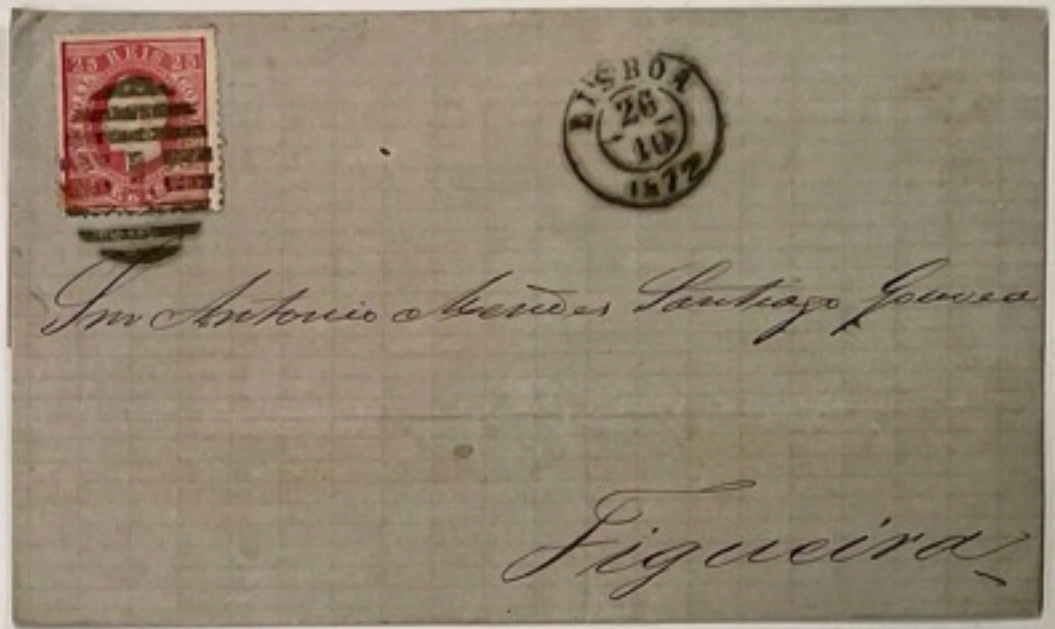 25 REIS 25
LISBOA
26
10
1872
Snr Antonio Mendes Santiago Gouvea
Figueira